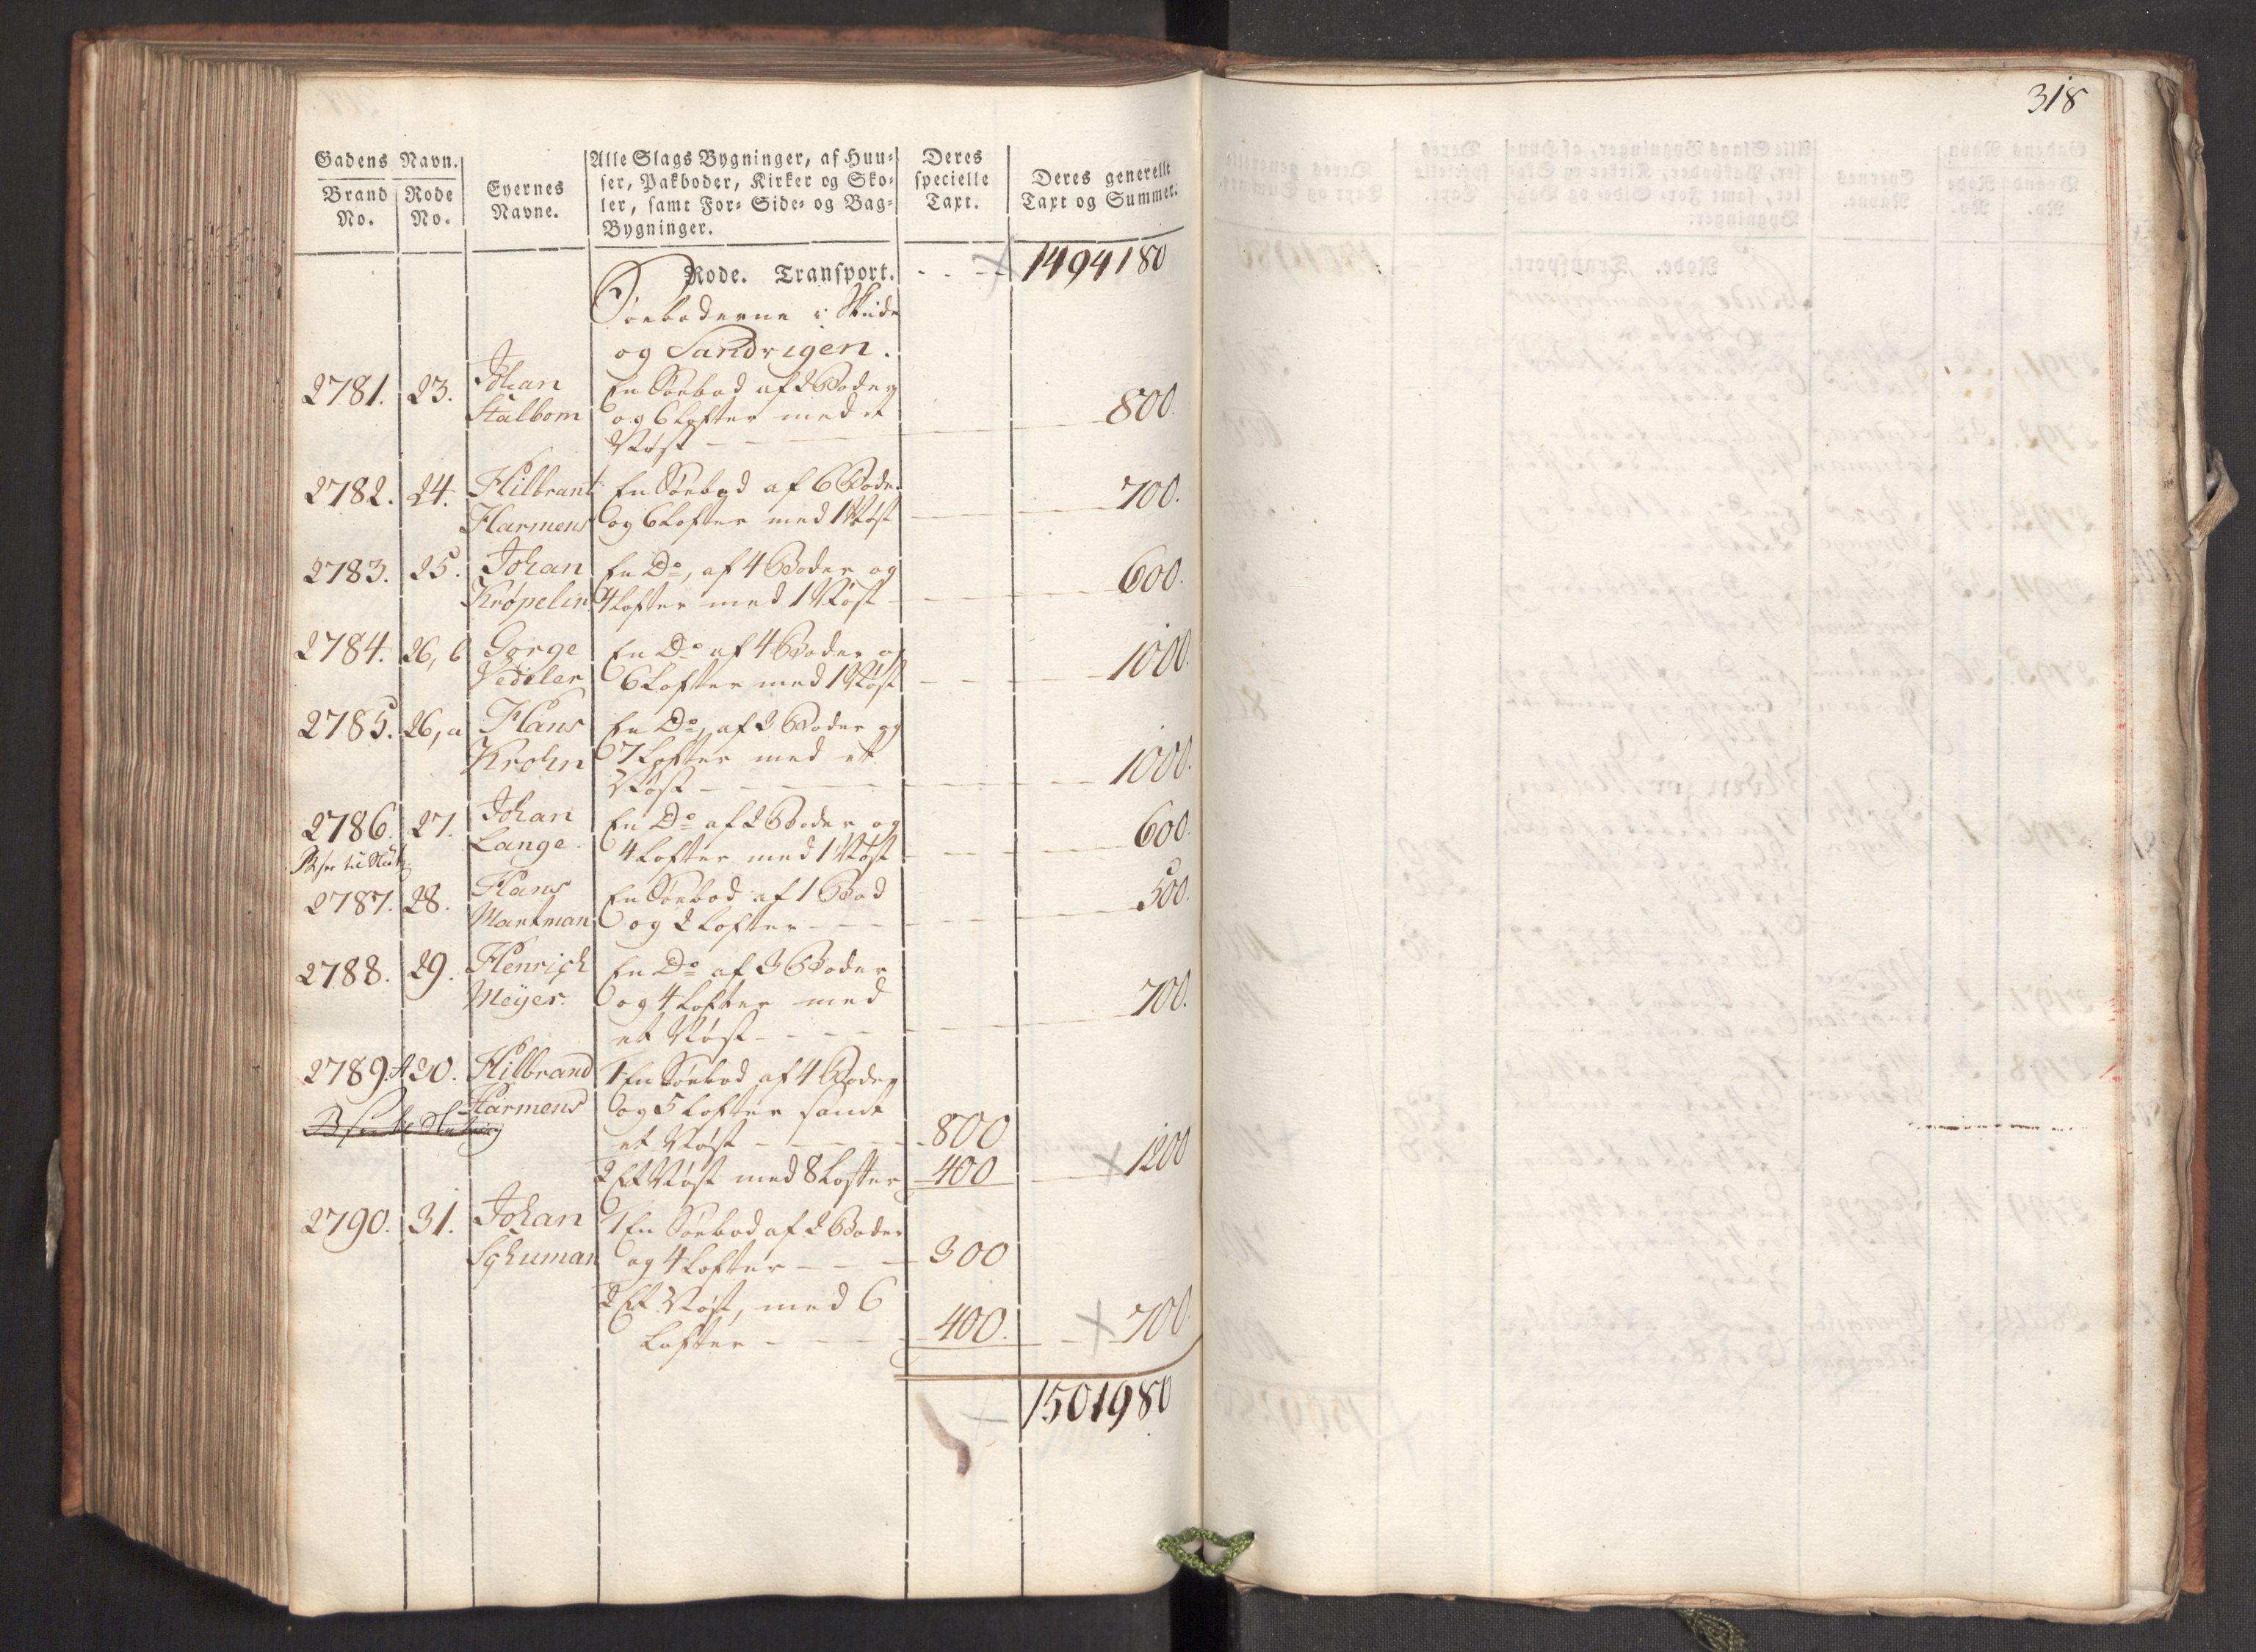 318
Gadens Navn.
Brand No.
Rode No.
Eyernes Navne.
Alle Slags Bygninger, af Huu-
ser, Pakboder, Kirker og Sko-
ler, samt For- Side- og Bag-
Bygninger.
Deres specielle Taxt.
Deres generelle Taxt og Summer.
Rode. Transport. 1494180
Søeboderne i Skude
og Sandvigen.
2781. 23. Johan En Søebod af 2 Boder
Stalbom og 6 Lofter med et 800.
Røst
2782. 24. Hilbrant En Søebod af 6 Boder 700.
Harmens og 6 Lofter med 1 Røst
2783. 25. Johan En Do, af 4 Boder og 600.
Krøpelin 4 Lofter med 1 Røst
2784. 26, b Gorge En Do af 4 Boder og
Vedeler 6 Lofter med 1 Røst 1000.
2785. 26, a Hans En Do, af 3 Boder og
Krohn 7 Lofter med et 1000.
Røst
2786. 27. Johan En Do af 2 Boder og
Lange. 4 Lofter med 1 Røst 600
2787. 28. Hans En Søebod af 1 Bod 500.
Martman og 2 Lofter
2788. 29. Henrich En Do af 3 Boder
Meÿer. og 4 Lofter med 700.
et Røst
2789. A 30. Hilbrand 1 En Søebod af 4 Boder
Harmens og 5 Lofter samt
et Røst 800
2 Et Røst med 8 Lofter 400 1200
2790. 31. Johan 1 En Søebod af 2 Boder
Schuman og 4 Lofter 300
2 Et Røst, med 6
Lofter 400. 700.
1501980